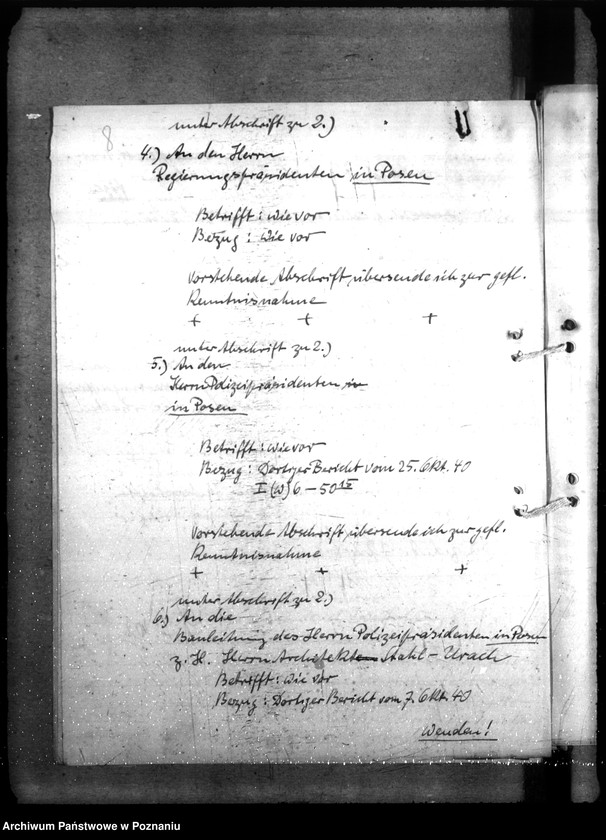 8
unter Abschrift zu 2.)
4.) An den Herrn
Regierungspräsidenten in Posen
Betrifft: wie vor
Bezug: wie vor
Vorstehende Abschrift übersende ich zur gefl.
Kenntnisnahme
+ + +
unter Abschrift zu 2.)
5.) An den
Herrn Polizeipräsidenten in
in Posen
Betrifft: wie vor
Bezug: Dortiger Bericht vom 25. Okt. 40
I (W) 6 – 50 15
Vorstehende Abschrift übersende ich zur gefl.
Kenntnisnahme
+ + +
unter Abschrift zu 2.)
6.) An die
Bauleitung des Herrn Polizeipräsidenten in Posen
z. H. Herrn Architekten Stahl – Urach
Betrifft: wie vor
Bezug: Dortiger Bericht vom 7. Okt. 40
Wenden!
Archiwum Państwowe w Poznaniu